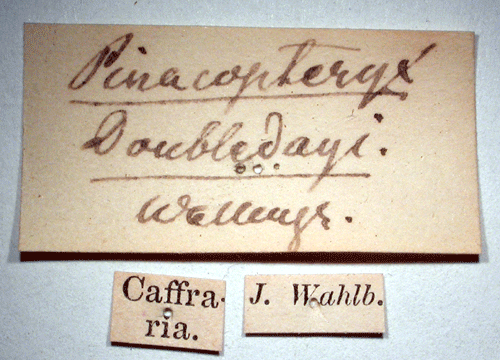 Pinacopteryx
Doubledayi.
Wallengr.
Caffra-
ria.
J. Wahlb.